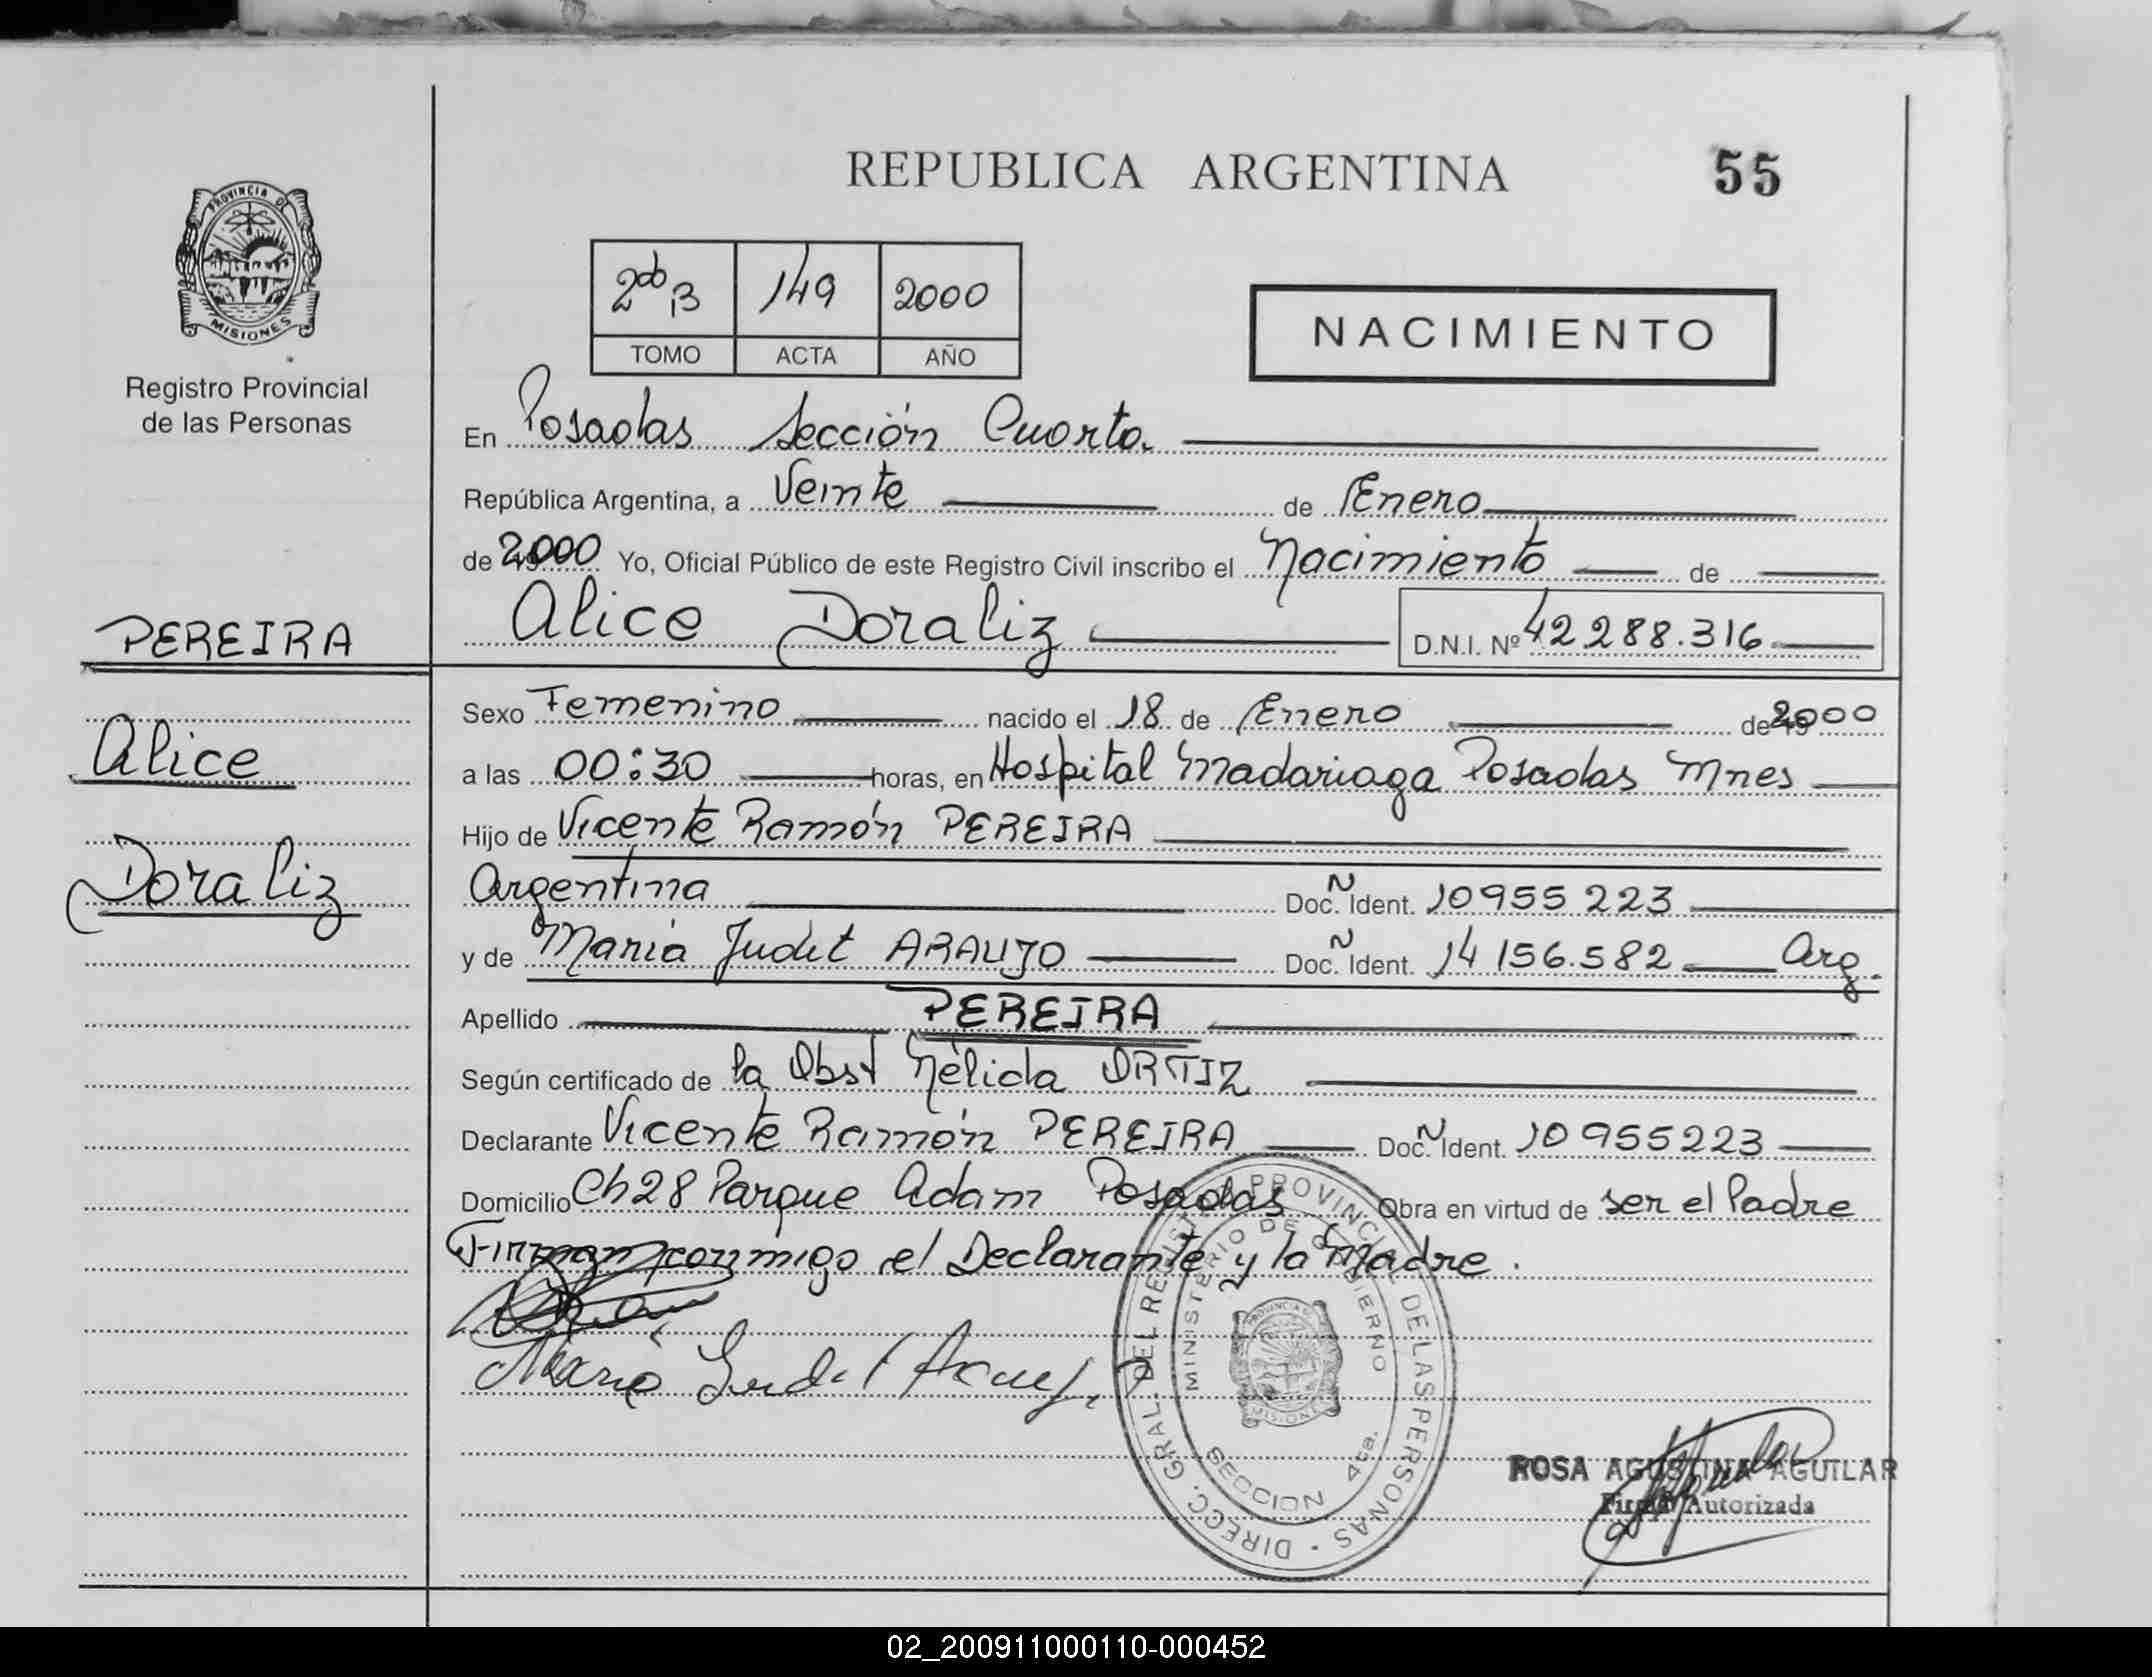 REPUBLICA ARGENTINA
55
PROVINCIA DE
MISIONES
Registro Provincial
de las Personas
2do B 149 2000
TOMO ACTA AÑO
NACIMIENTO
En Posadas Sección Cuarta.
República Argentina, a Veinte de Enero
de 2000 Yo, Oficial Público de este Registro Civil inscribo el Nacimiento de
PEREIRA
Alice Doraliz D.N.I. Nº 42288.316
Sexo Femenino nacido el 18 de Enero de 2000
Alice
a las 00:30 horas, en Hospital Madariaga Posadas Mnes
Hijo de Vicente Ramón PEREIRA
Doraliz
Argentina Doc. Ident. 10955223
y de María Judit ARAUJO Doc. Ident. 14156.582 Arg.
Apellido PEREIRA
Según certificado de la Obst Nélida ORTIZ
Declarante Vicente Ramón PEREIRA Doc. Ident. 10955223
Domicilio Ch 28 Parque Adam Posadas Obra en virtud de ser el Padre
Firman conmigo el Declarante y la Madre.
María Judit Araujo
DIRECC. GRAL. DEL REGISTRO PROVINCIAL DE LAS PERSONAS
MINISTERIO DE GOBIERNO
PROVINCIA DE
MISIONES
SECCION 4ta.
ROSA AGUSTINA AGUILAR
Firma Autorizada
02_200911000110-000452